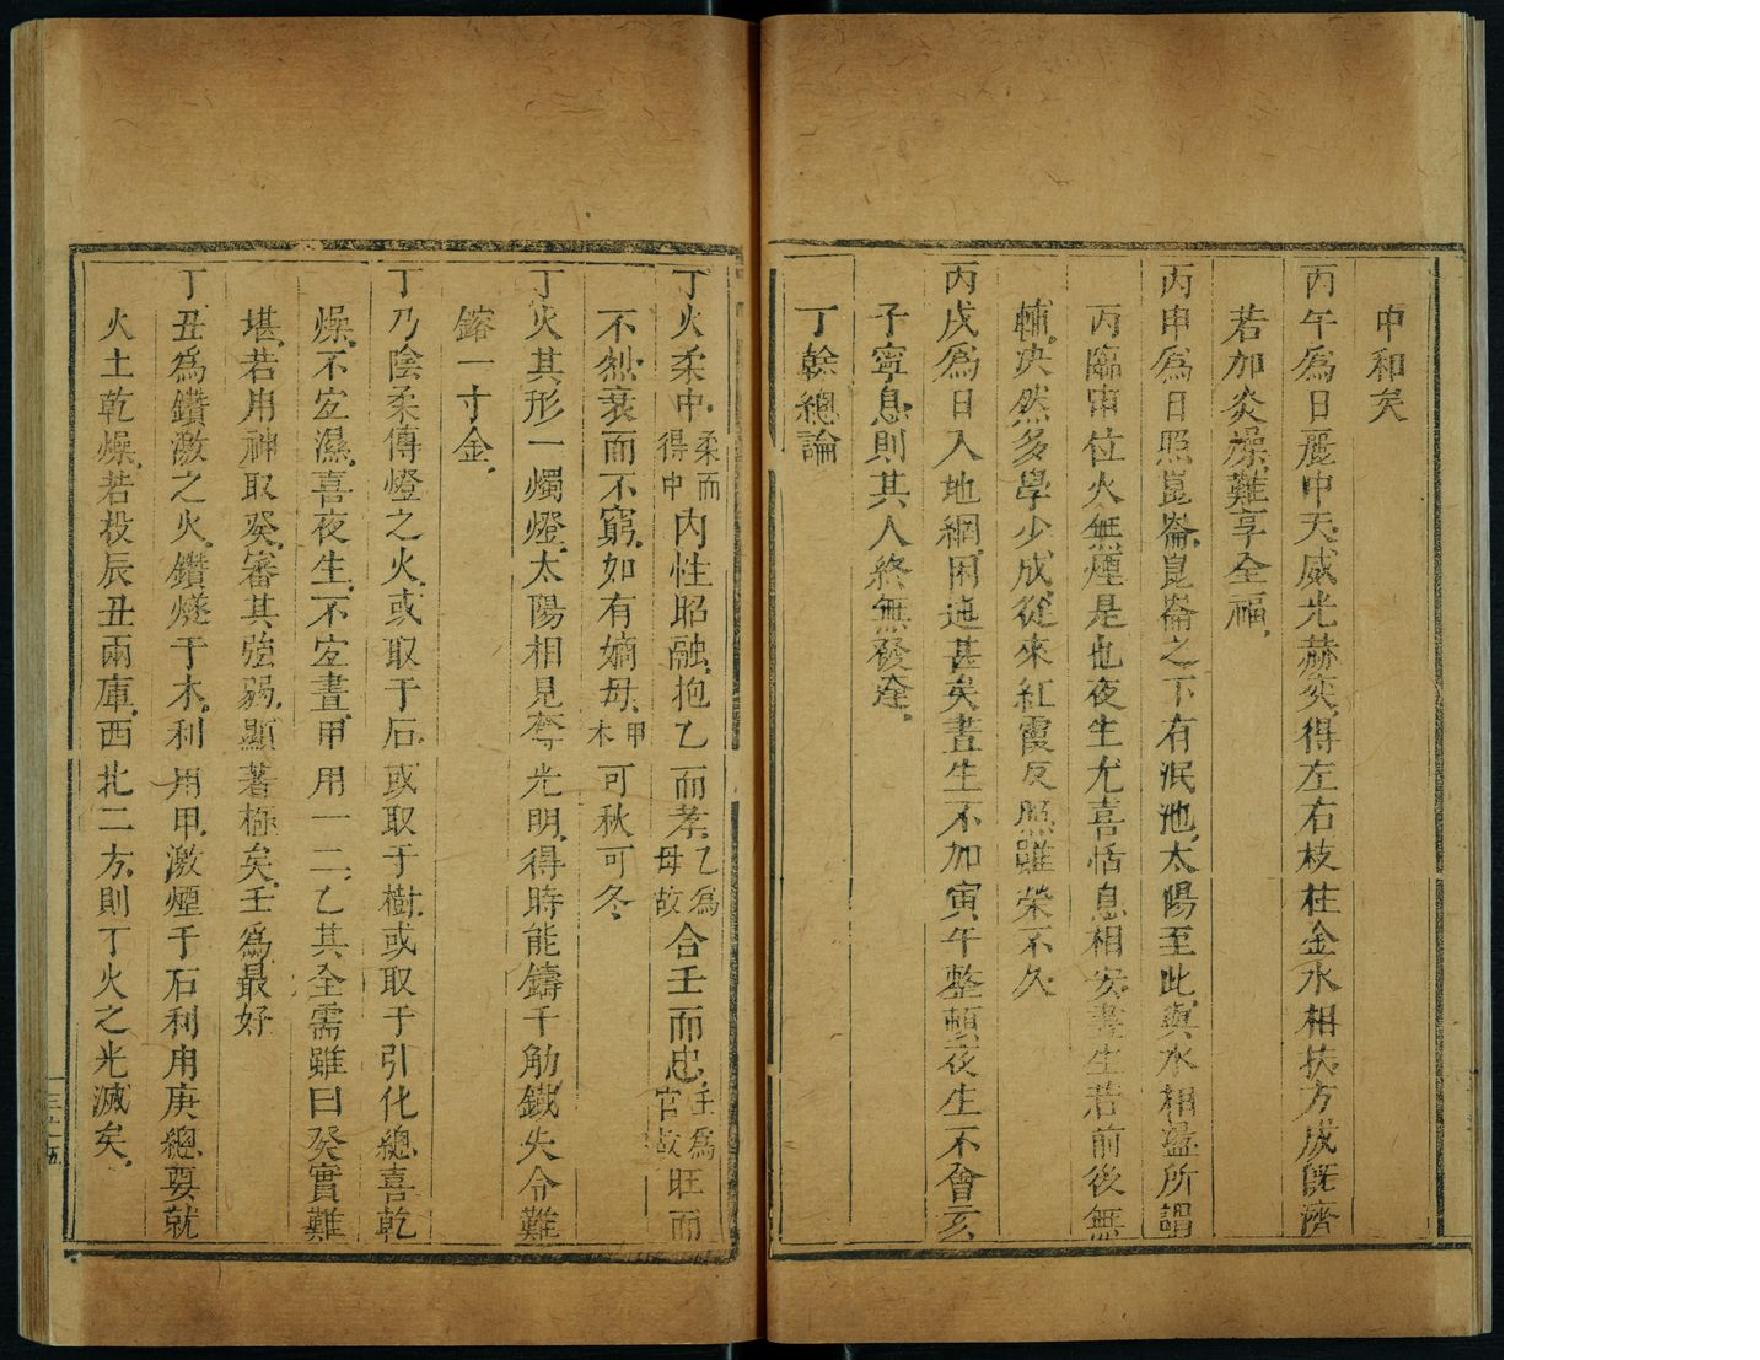 中和矣
丙午爲日麗中天威光赫奕得左右枝柱金水相扶方成旣濟
若加炎燥難享全福
丙申爲日照崑崙崑崙之下有泯池太陽至此與水相盪所謂
丙臨申位火無煙是也夜生尤喜恬息相安晝生若前後無
輔决然多學少成從來紅霞反照雖榮不久
丙戌爲日入地網困迍甚矣晝生不加寅午整頓夜生不會亥
子寧息則其人終無發達
丁幹總論
丁火柔中柔而得中内性昭融抱乙而孝乙爲母故合壬而忠壬爲官故旺而
不烈衰而不窮如有嫡母甲木可秋可冬
丁火其形一燭燈太陽相見奪光明得時能鑄千觔鐵失令難
鎔一寸金
丁乃陰柔傳燈之火或取于石或取于樹或取于引化總喜乾
燥不宐濕喜夜生不宐晝甲用一二乙其全需雖曰癸實難
堪若用神取癸審其强弱顯著極矣壬爲最好
丁丑爲鑽激之火鑽燧于木利用甲激煙于石利用庚總要就
火土乾燥若投辰丑兩庫西北二方則丁火之光滅矣